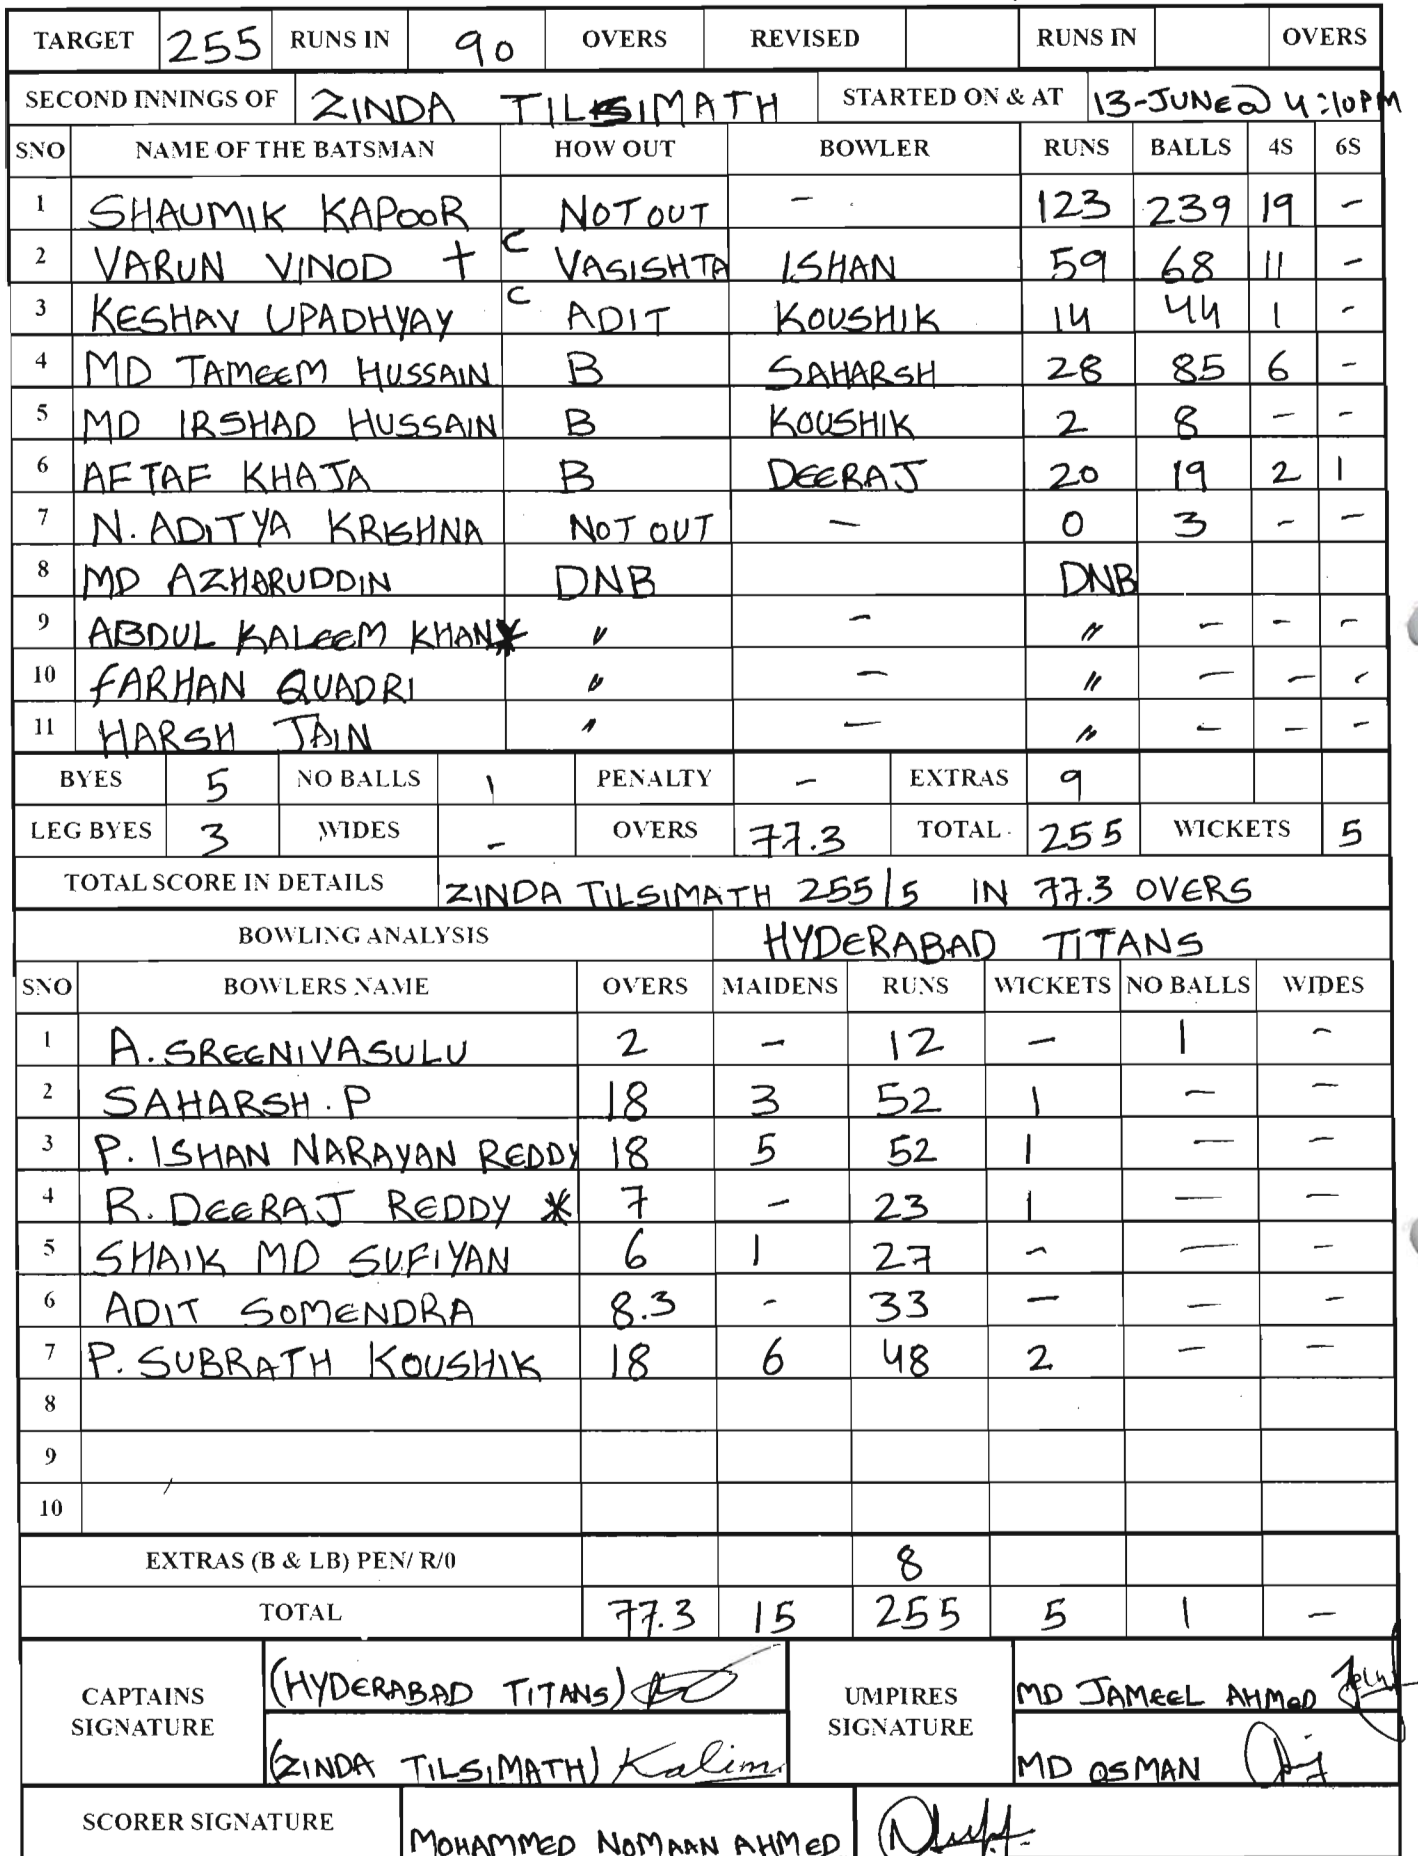 TARGET 255 RUNS IN 90 OVERS REVISED RUNS IN OVERS
SECOND INNINGS OF ZINDA TILSIMATH STARTED ON & AT 13-JUNE@ 4:10PM
SNO NAME OF THE BATSMAN HOW OUT BOWLER RUNS BALLS 4S 6S
1 SHAUMIK KAPOOR NOT OUT - 123 239 19 -
2 VARUN VINOD + C VASISHTA ISHAN 59 68 11 -
3 KESHAV UPADHYAY C ADIT KOUSHIK 14 44 1 -
4 MD TAMEEM HUSSAIN B SAHARSH 28 85 6 -
5 MD IRSHAD HUSSAIN B KOUSHIK 2 8 - -
6 AFTAF KHAJA B DEERAJ 20 19 2 1
7 N. ADITYA KRISHNA NOT OUT - 0 3 - -
8 MD AZHARUDDIN DNB DNB
9 ABDUL KALEEM KHAN* " - " - - -
10 FARHAN QUADRI " - " - - -
11 HARSH JAIN " - " - - -
BYES 5 NO BALLS 1 PENALTY - EXTRAS 9
LEG BYES 3 WIDES - OVERS 77.3 TOTAL 255 WICKETS 5
TOTAL SCORE IN DETAILS ZINDA TILSIMATH 255/5 IN 77.3 OVERS
BOWLING ANALYSIS HYDERABAD TITANS
SNO BOWLERS NAME OVERS MAIDENS RUNS WICKETS NO BALLS WIDES
1 A. SREENIVASULU 2 - 12 - 1 -
2 SAHARSH. P 18 3 52 1 - -
3 P. ISHAN NARAYAN REDDY 18 5 52 1 - -
4 R. DEERAJ REDDY * 7 - 23 1 - -
5 SHAIK MD SUFIYAN 6 1 27 - - -
6 ADIT SOMENDRA 8.3 - 33 - - -
7 P. SUBRATH KOUSHIK 18 6 48 2 - -
8
9
10
EXTRAS (B & LB) PEN/ R/0 8
TOTAL 77.3 15 255 5 1 -
CAPTAINS SIGNATURE (HYDERABAD TITANS) UMPIRES SIGNATURE MD JAMEEL AHMED
(ZINDA TILSIMATH) Kalim MD OSMAN
SCORER SIGNATURE MOHAMMED NOMAAN AHMED